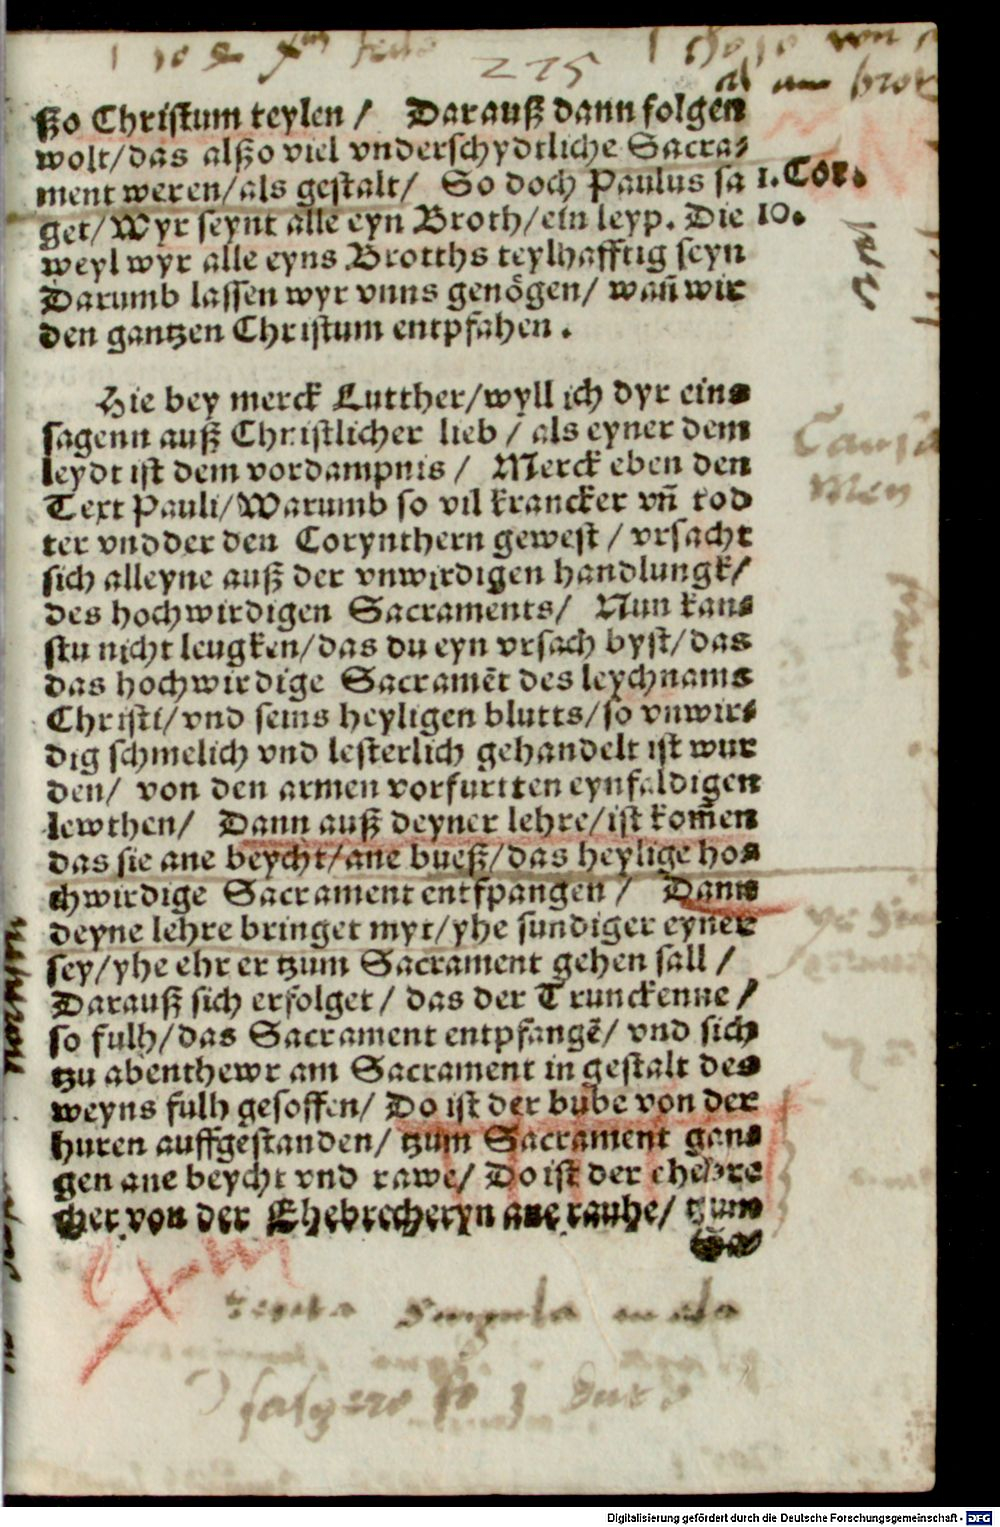 275
ßo Christum teylen / Darauß dann folgen
wolt/das alßo viel vnderschydtliche Sacra-
ment weren/als gestalt/ So doch Paulus sa 1.Cor.
get/Wyr seynt alle eyn Broth/ein leyp. Die 10.
weyl wyr alle eyns Brotths teylhafftig seyn
Darumb lassen wyr vnns genögen/ wañ wir
den gantzen Christum entpfahen .
Hie bey merck Lutther/wyll ich dyr eins
sagenn auß Christlicher lieb / als eyner dem
leydt ist dem vordampnis / Merck eben den
Text Pauli/Warumb so vil krancker vñ tod
ter vndder den Corynthern gewest / vrsacht
sich alleyne auß der vnwirdigen handlungk/
des hochwirdigen Sacraments/ Nun kans
stu nicht leugken/das du eyn vrsach byst/das
das hochwirdige Sacramēt des leychnams
Christi/vnd seins heyligen blutts/so vnwir-
dig schmelich vnd lesterlich gehandelt ist wur
den/ von den armen vorfurtten eynfaldigen
lewthen/ Dann auß deyner lehre/ist kom̄en
das sie ane beycht/ane bueß/das heylige ho-
chwirdige Sacrament entfpangen / Dann
deyne lehre bringet myt/yhe sundiger eyner
sey/yhe ehr er tzum Sacrament gehen sall /
Darauß sich erfolget / das der Trunckenne /
so fulh/das Sacrament entpfangē/ vnd sich
tzu abenthewr am Sacrament in gestalt des
weyns fulh gesoffen/ Do ist der bube von der
huren auffgestanden/ tzum Sacrament gan-
gen ane beycht vnd rawe/ Do ist der ehebre
cher von der Ehebrecheryn ane rauhe/ tzum
Digitalisierung gefördert durch die Deutsche Forschungsgemeinschaft - DFG